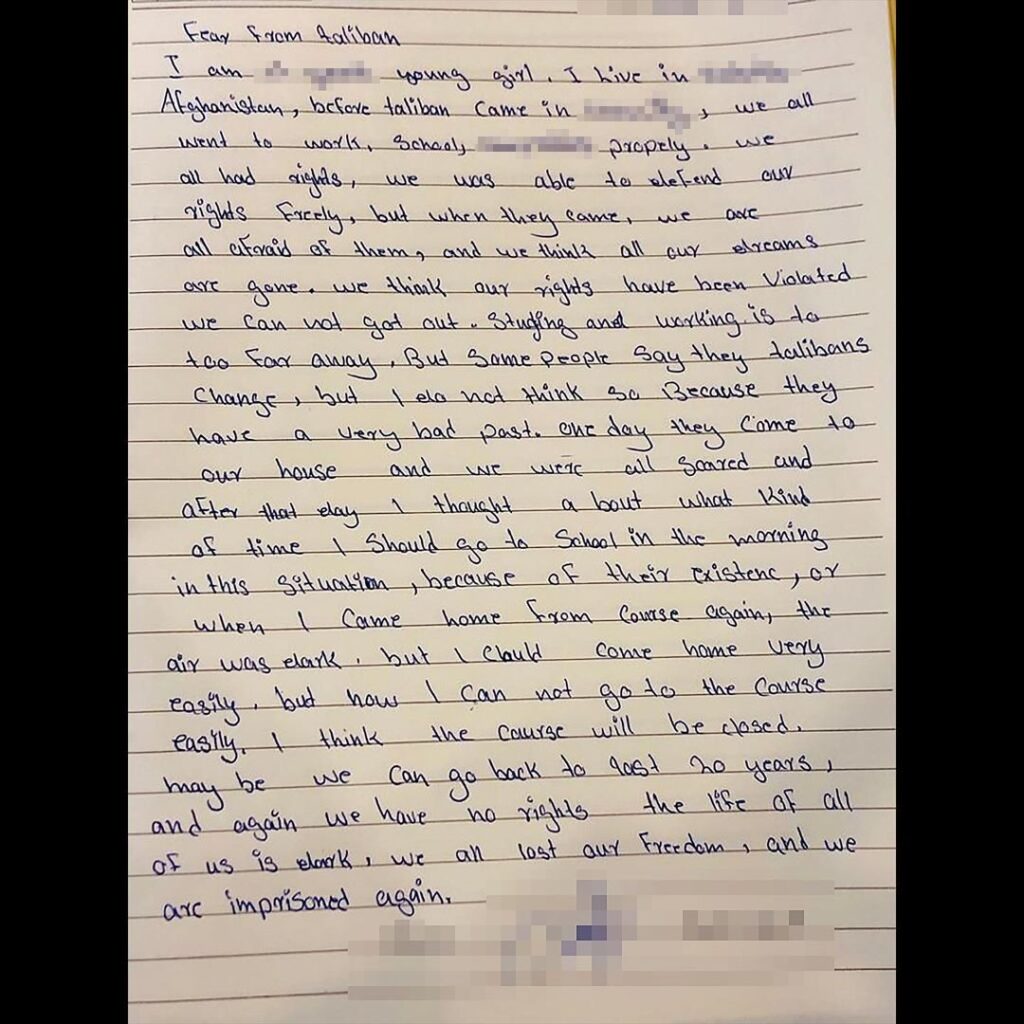 Fear from taliban
I am young girl. I live in
Afghanistan, before taliban came in , we all
went to work, School, propely. we
all had rights, we was able to defend our
rights freely, but when they came, we are
all afraid of them, and we think all our dreams
are gone. we think our rights have been Violated
we can not got out. Studing and working is to
too far away. But Some people say they talibans
Change, but I do not think so Because they
have a very bad past. one day they come to
our house and we were all scared and
after that day I thought a bout what kind
of time I should go to School in the morning
in this situation, because of their existenc, or
when I came home from course again, the
air was dark. but I could come home very
easily. but how I can not go to the course
easily. I think the course will be closed.
may be we can go back to last 20 years,
and again we have no rights the life of all
of us is dark, we all lost our freedom, and we
are imprisoned again.